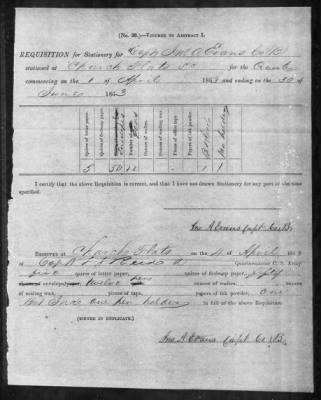 (No. 38.)—VOUCHER TO ABSTRACT I.
REQUISITION for Stationery for Capt Jno A Evans Co B
stationed at Church Flats S C for the
commencing on the 1 of April 1863 and ending on the 30 of
June 1863
Quires of letter paper.
Envelopes
Pens
Ounces of wafers.
Ounces of sealing wax.
Pieces of office tape.
Papers of ink powder.
Pen holder
5 50 12 1 1
I certify that the above Requisition is correct, and that I have not drawn Stationery for any part of the time
specified.
Jno A Evans Capt Co B
RECEIVED at Church Flats on the 4 of April 1863
of Capt Quartermaster C. S. Army
five quires of letter paper, quires of foolscap paper, fifty
envelopes, twelve pens ounces of wafers, ounces
of sealing wax, pieces of tape, papers of ink powder, one
Bot Ink one pen holder in full of the above Requisition
(SIGNED IN DUPLICATE.)
Jno A Evans Capt Co B